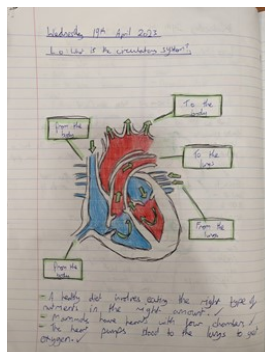 Wednesday 19th April 2023
L.o: What is the circulatory system?
To the
body
from the
body
To the
lungs
From the
lungs
from the
body
- A healthy diet involves eating the right type of
nutrients in the right amount. ✓
- mammals have hearts with four chambers ✓
- The heart pumps blood to the lungs to get
oxygen. ✓